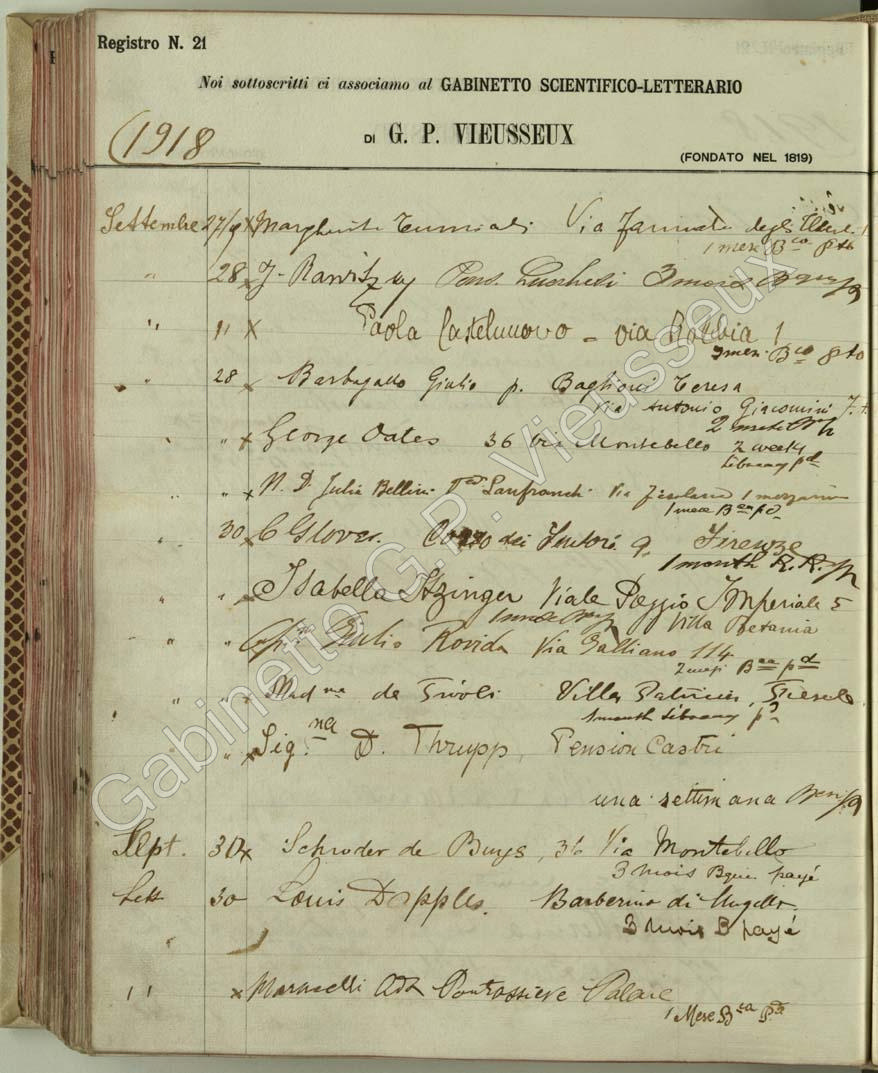 Registro N. 21
Noi sottoscritti ci associamo al GABINETTO SCIENTIFICO-LETTERARIO
(1918
DI G. P. VIEUSSEUX
(FONDATO NEL 1819)
Settembre 27/9 x Margherita Via Farinata degli
1 mese Bca pto
" 28 x J. Pens. Lucchesi 3 mois
" " x Paola Castelnuovo - via Robbia 1
3 mesi Bca pto
" 28 x Barbagallo Giulio p. Baglioni Teresa
Via Antonio Giacomini 7.
2 mesi
" " x George Oates 36 Via Montebello 2 weeks
Library pd
" " x N. D. Julia Bellini Lanfranchi Via Fiesolana 1
1 mese
" 30 x C Glover. Corso dei Tintori 9 Firenze
1 month R. R.
" " x Isabella Itzinger Viale Poggio Imperiale 5
1 mese Villa Betania
" " Giulio Rovida Via Galliano 114
2 mesi Bca pd
" " Madma de Tivoli Villa Fiesole
1 month Library pd
" " x Sig.na D. Thrupp, Pension Castri
una settimana
Sept. 30 x Schroder de Buys, 36 Via Montebello
3 mois Bque payé
Sett 30 Louis Dapples. Barberino di Mugello.
" 3 mois B payé
" x Ada Pontassieve
1 Mese Bca Pto
Gabinetto G.P. Vieusseux